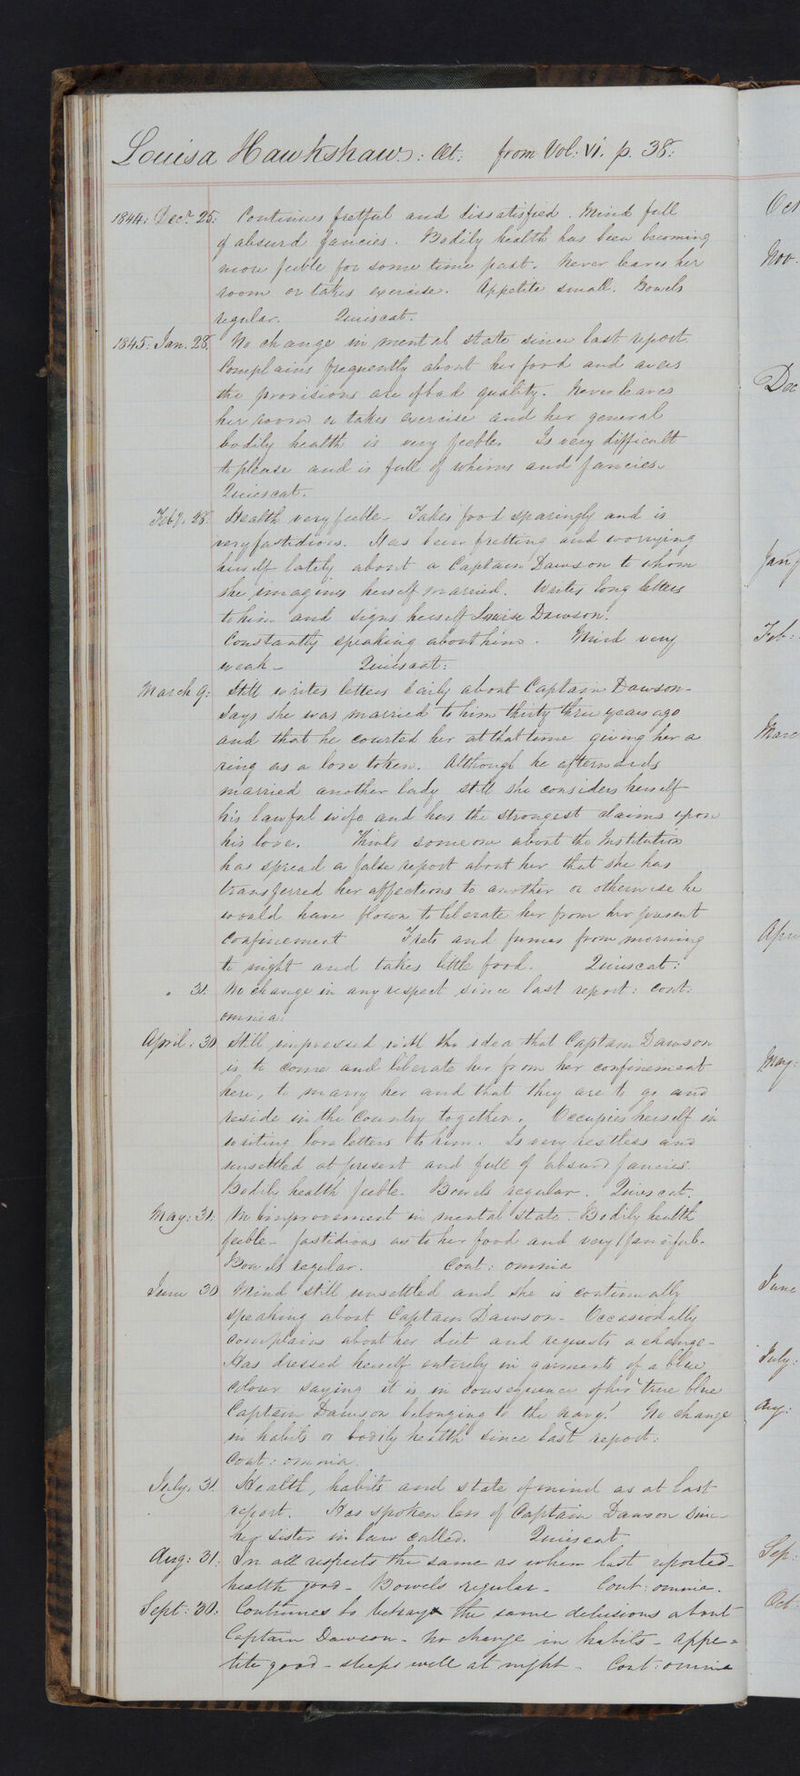 Louisa Hawkshaw: Æt: from Vol: VI. p. 38:
1844: Decr 25: Continues fretful and dissatisfied. Mind full
of absurd fancies. Bodily health has been becoming
more feeble for some time past. Never leaves her
room or takes exercise. Appetite small. Bowels
regular. Quiescat.
1845: Jan. 28. No change in mental state since last report.
Complains frequently about her food and avers
the provisions are of bad quality. Never leaves
her room or takes exercise and her general
bodily health is very feeble. Is very difficult
to please and is full of whims and fancies.
Quiescat.
Feby. 28. Health very feeble. Takes food sparingly and is
very fastidious. Has been fretting and worrying
herself lately about a Captain Dawson to whom
she imagines herself married. Writes long letters
to him and signs herself Louisa Dawson.
Constantly speaking about him. Mind very
weak - Quiescat:
March 9: Still writes letters daily about Captain Dawson.
Says she was married to him thirty three years ago
and that he courted her at that time giving her a
ring as a love token. Although he afterwards
married another lady still she considers herself
his lawful wife and has the strongest claims upon
his love. Thinks someone about the Institution
has spread a false report about her that she has
transferred her affections to another or otherwise he
would have flown to liberate her from her present
confinement Frets and fumes from morning
to night and takes little food. Quiescat:
" 31. No change in any respect since last report: Cont:
omnia:
April. 30 Still impressed with the idea that Captain Dawson
is to come and liberate her from her confinement
here, to marry her and that they are to go and
reside in the Country together. Occupies herself in
writing love letters to him. Is very restless and
unsettled at present and full of absurd fancies.
Bodily health feeble. Bowels regular. Quiescat.
May: 31. No improvement in mental state. Bodily health
feeble - fastidious as to her food and very fanciful.
Bowels regular. Cont: omnia
June 30 Mind still unsettled and she is continually
speaking about Captain Dawson. Occasionally
complains about her diet and requests a change -
Has dressed herself entirely in garments of a blue
colour saying it is in consequence of her "true blue
Captain Dawson belonging to the navy." No change
in habits or bodily health since last report:
Cont: omnia.
July. 31. Health, habits and state of mind as at last
report. Has spoken less of Captain Dawson since
her sister in law called. Quiescat
Aug: 31. In all respects the same as when last reported -
health good - Bowels regular - Cont: omnia.
Sept: 30: Continues to betray the same delusions about
Captain Dawson - No change in habits - appe=
tite good - sleeps well at night - Cont: omnia
Oct
Nov.
Dec
Jany
Feb:
Marc
Apri
May:
June
July:
Aug:
Sep:
Oct: